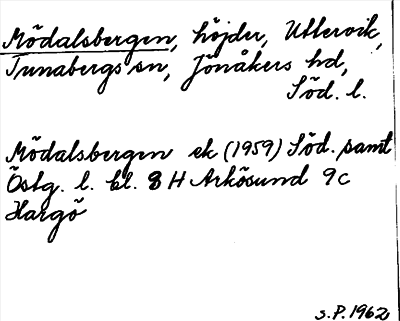 Mödalsbergen, höjder, Uttervik,
Tunabergs sn, Jönåkers hd,
Söd. l.
Mödalsbergen ek (1959) Söd. samt
Östg. l. bl. 8 H Arkösund 9c
Hargö
s.P. 1962